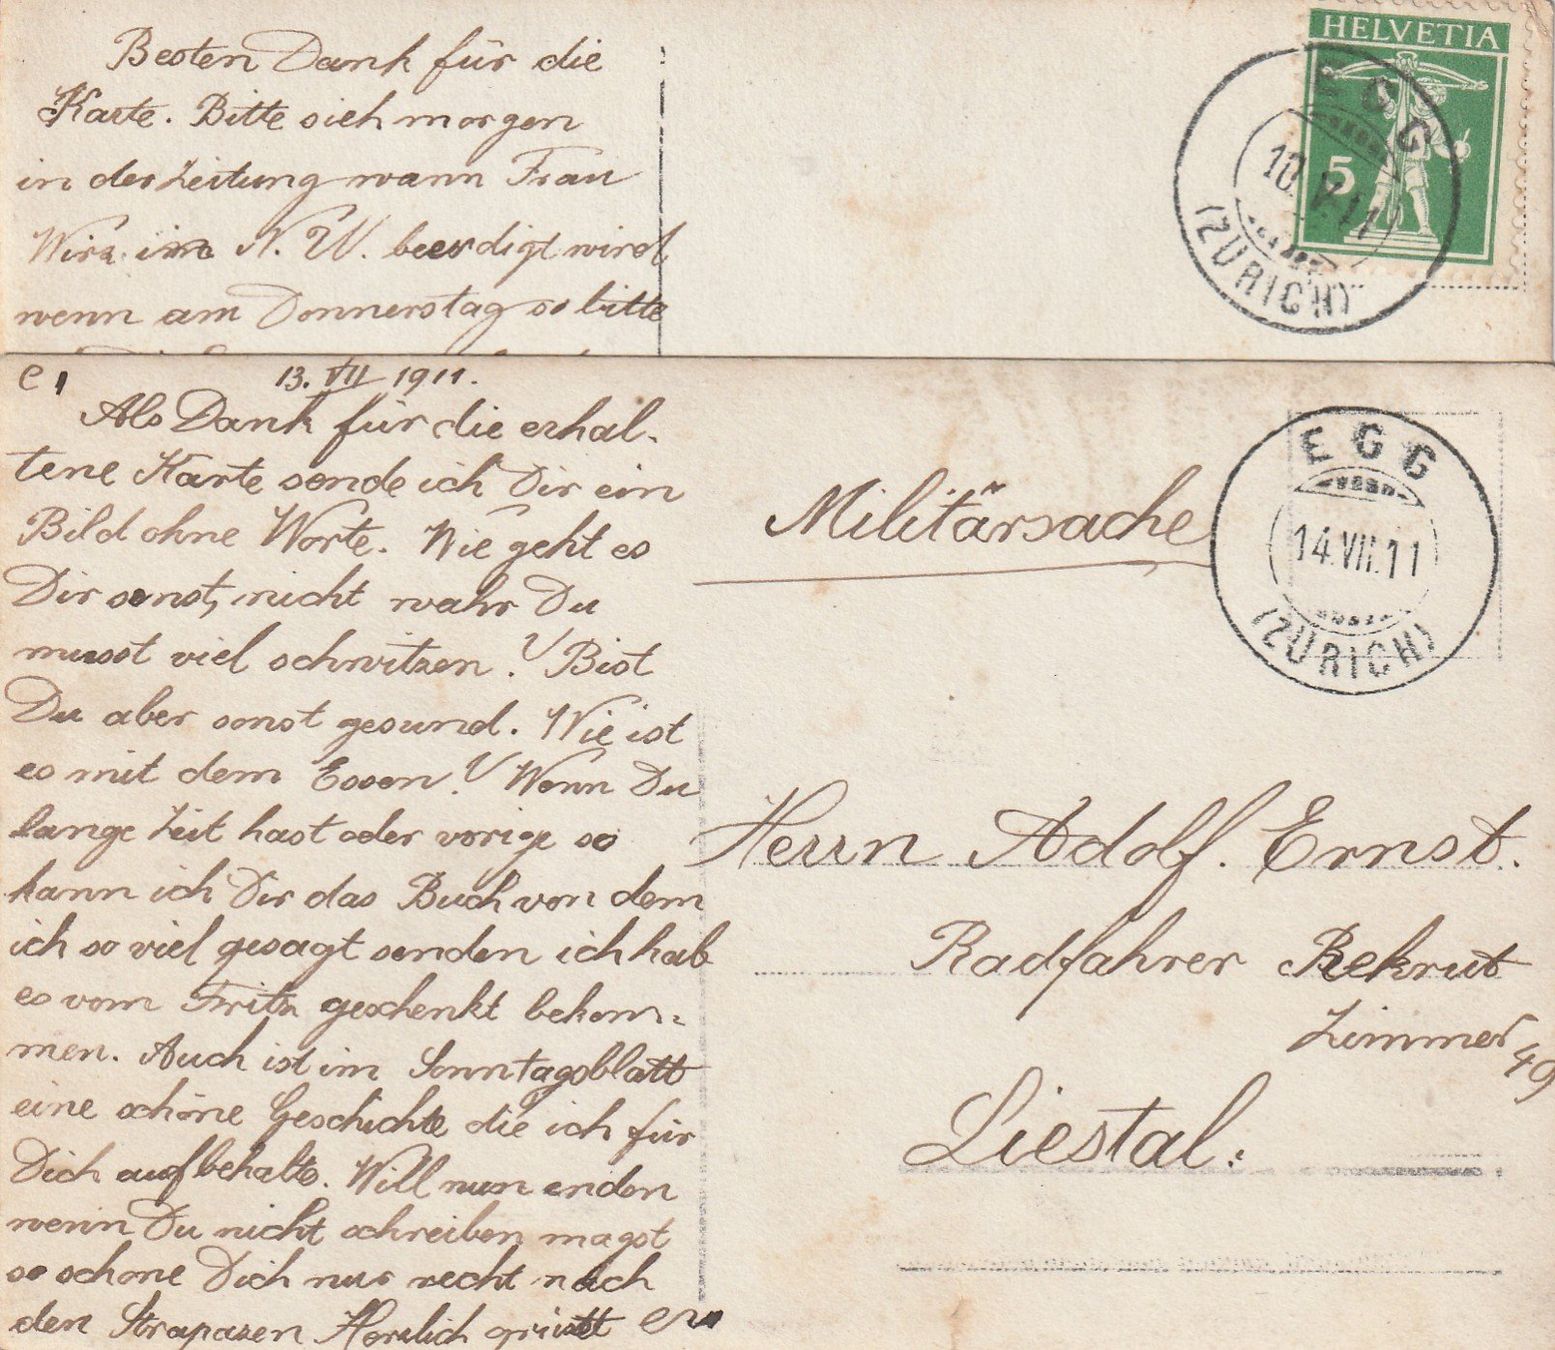 Besten Dank für die
Karte. Bitte sieh morgen
in der Zeitung wann Frau
N. W. beerdigt wird
wenn am Donnerstag so bitte
HELVETIA
5
EGG
10.V.11
(ZÜRICH)
13. VII 1911.
Als Dank für die erhal-
tene Karte sende ich Dir ein
Bild ohne Worte. Wie geht es
Dir sonst, nicht wahr Du
musst viel schwitzen? Bist
Du aber sonst gesund. Wie ist
es mit dem Essen? Wenn Du
lange Zeit hast oder vorige so
kann ich Dir das Buch von dem
ich so viel gesagt senden ich hab
es vom Fritz geschenkt bekom-
men. Auch ist im Sonntagsblatt
eine schöne Geschichte die ich für
Dich aufbehalte. Will nun enden
wenn Du nicht schreiben magst
so schone Dich nur recht nach
den Strapazen Herzlich grüsst
Militärsache
EGG
14.VII.11
(ZÜRICH)
Herrn Adolf. Ernst.
Radfahrer Rekrut
Zimmer 49
Liestal: